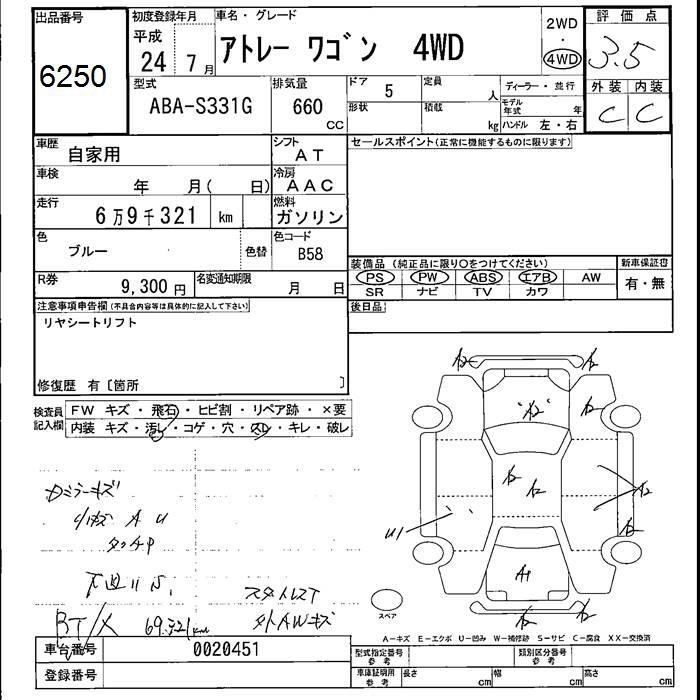 出品番号
6250
初度登録年月
平成
24 7月
車名・グレード
アトレー ワゴン 4WD
2WD
・
4WD
評価点
3.5
外装 内装
C C
型式
ABA-S331G
排気量
660
CC
ドア
5
定員
人
形状
積載
kg
ディーラー・並行
モデル年式
年
ハンドル 左・右
車歴
自家用
シフト
AT
車検
年 月( 日)
冷房
AAC
走行
6万9千321 km
燃料
ガソリン
色
ブルー
色替
色コード
B58
R券
9,300円
名変通知期限
月 日
セールスポイント(正常に機能するものに限ります)
装備品 (純正品に限り○をつけてください)
PS PW ABS エアB AW
SR ナビ TV カワ
新車保証書
有・無
後日品
注意事項申告欄(不具合内容等は具体的に記入して下さい)
リヤシートリフト
修復歴 有〔箇所 〕
検査員記入欄
FW キズ・飛石・ヒビ割・リペア跡・×要
内装 キズ・汚レ・コゲ・穴・スレ・キレ・破レ
A2
A2
A2
A2
A2
A2
A2
A2
U1
A1
A2
A2
スペア
A U
タッチP
下廻りS,
スタルスT
RT/X 69.321km
外AWキズ
A－キズ E－エクボ U－凹み W－補修跡 S－サビ C－腐食 XX－交換済
車台番号
0020451
登録番号
型式指定番号
参考
類別区分番号
参考
車庫証明用
参考
長さ cm
幅 cm
高さ cm